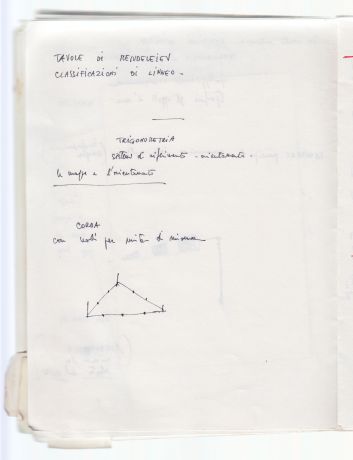 TAVOLE DI MENDELEIEV
CLASSIFICAZIONI DI LINNEO.
TRIGONOMETRIA
sistemi di riferimento - orientamento -
la mappa e l'orientamento
CORDA
con nodi per unità di misura